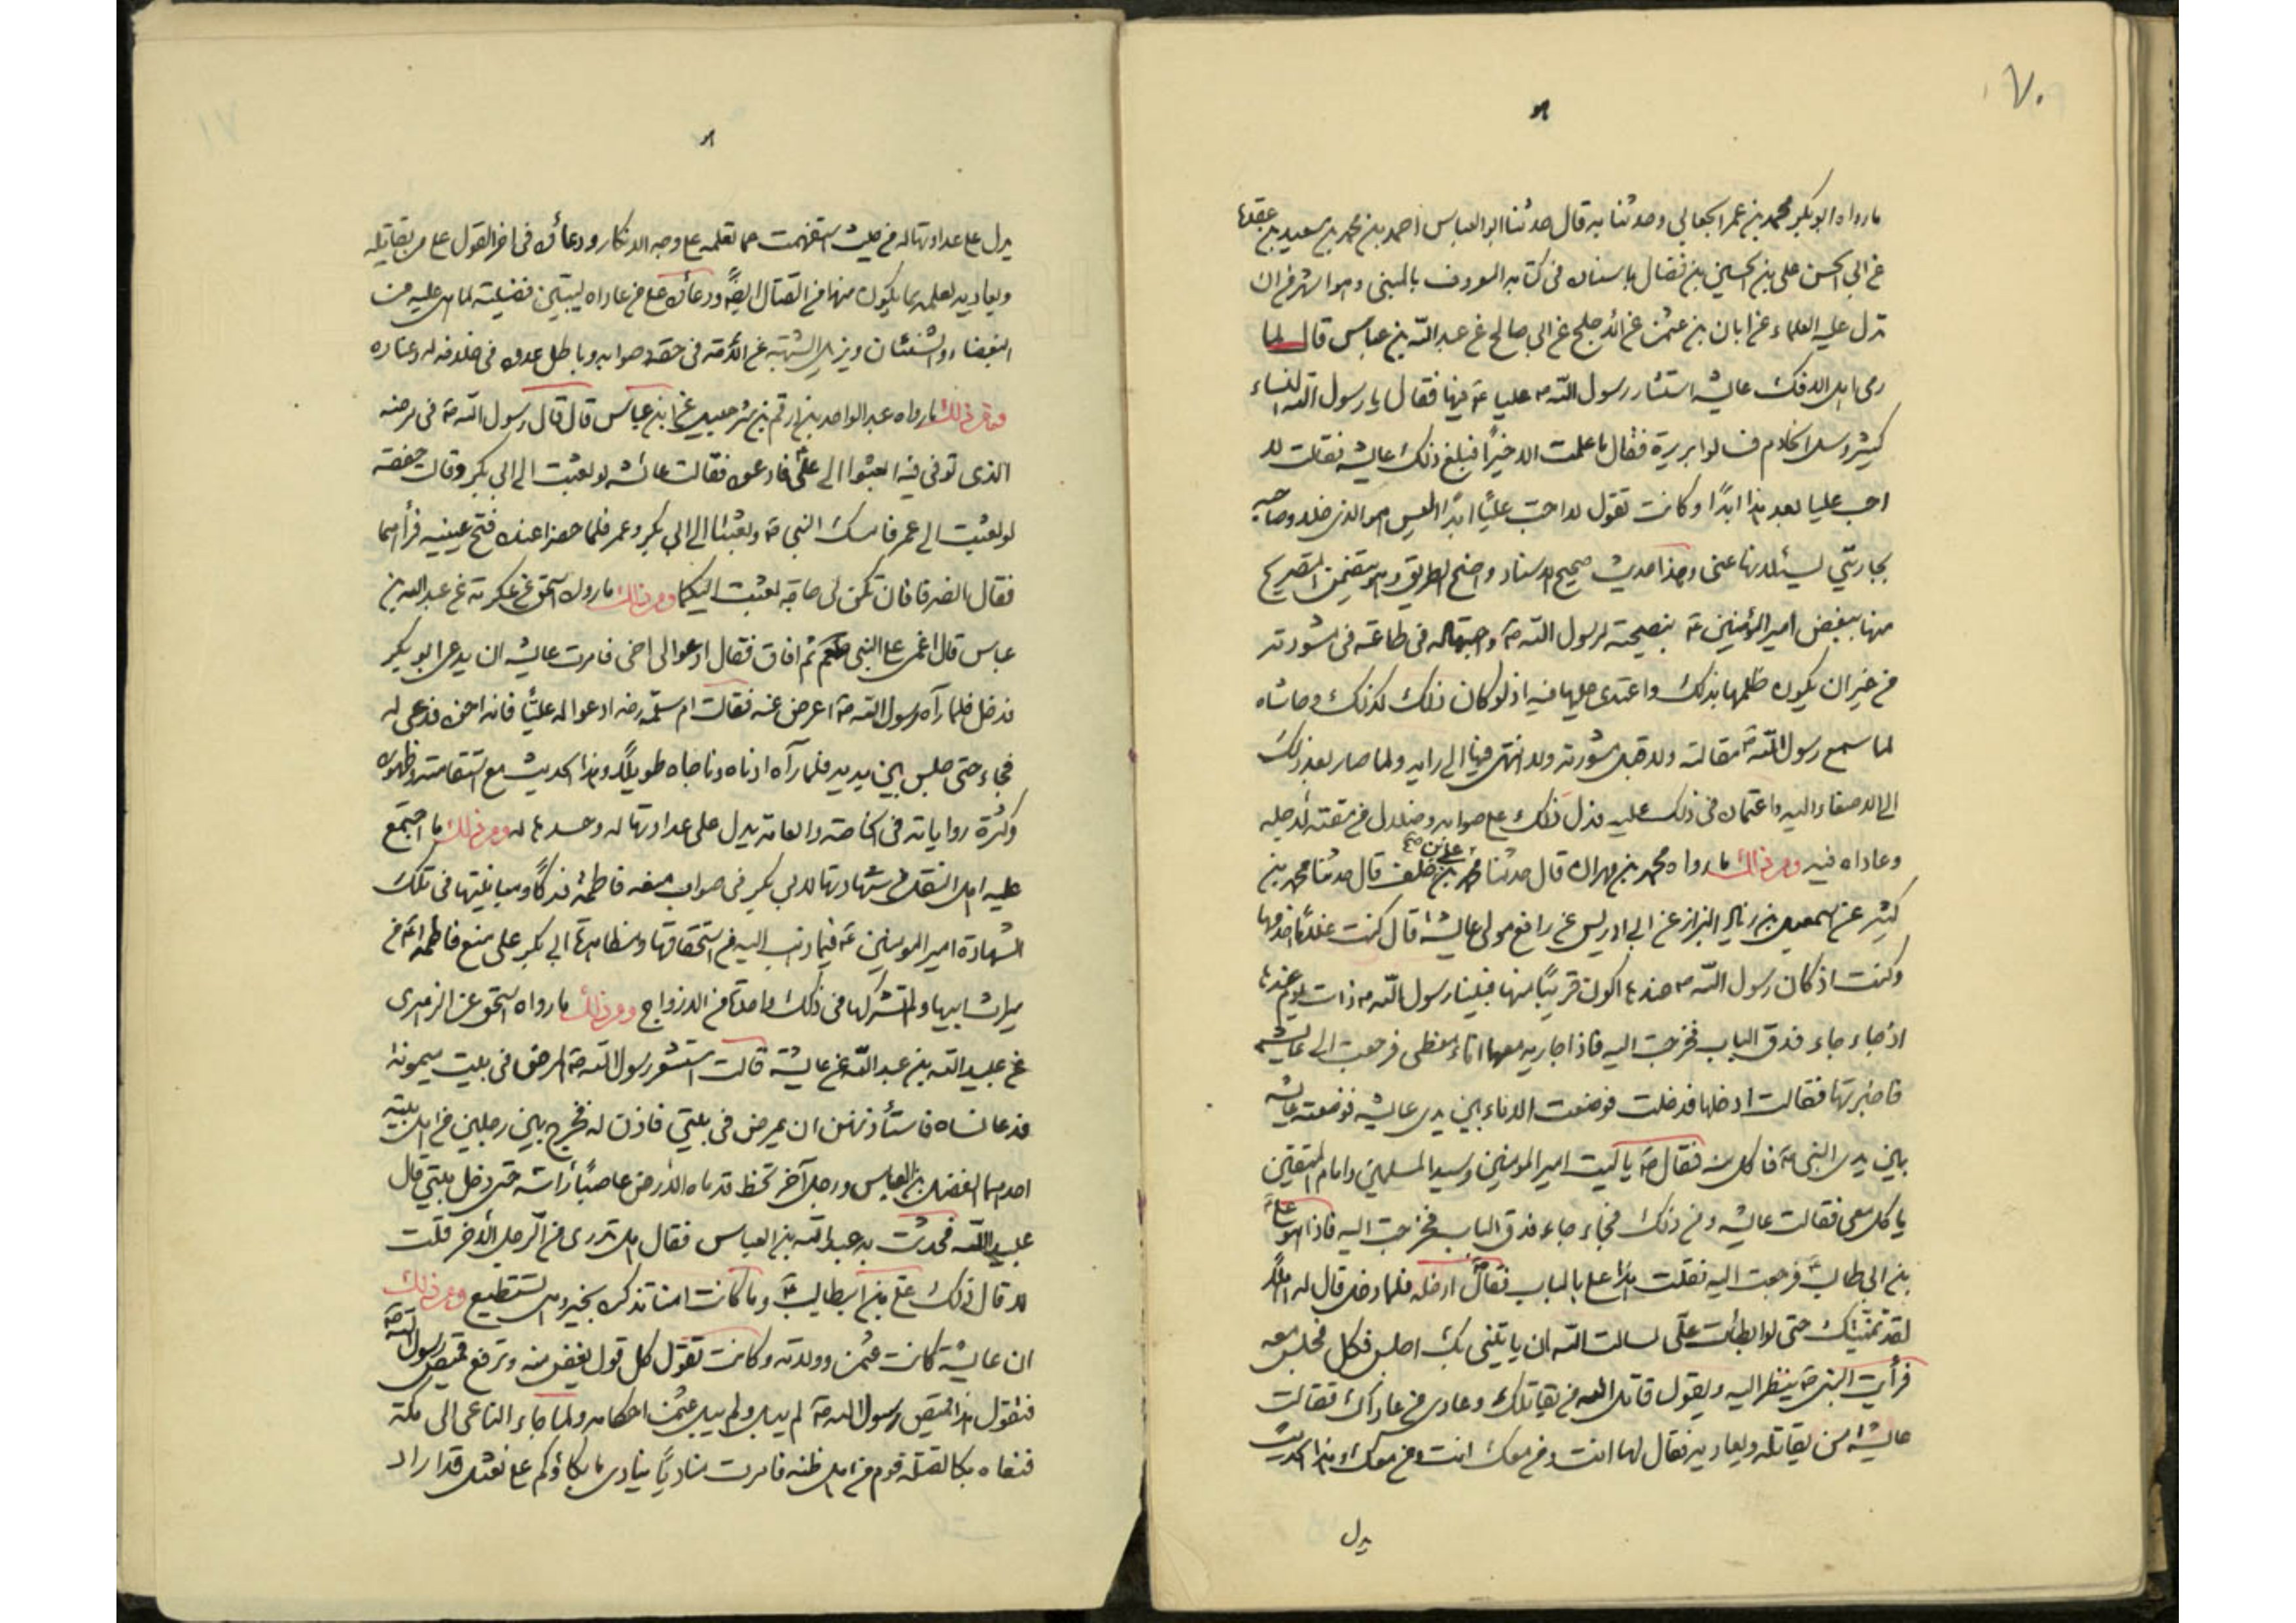 ٧٠
ما رواه ابو بكر محمد بن عمر الجعابي وحدثنا به قال حدثنا ابو العباس احمد بن محمد بن سعيد بن عقدة
عن ابي الحسن علي بن الحسين بن فضال باسناده في كتابه المعروف بالمبنى وهو اشهر من ان
تدل عليه العلماء عن ابان بن عثمن عن الاجلح عن ابي صالح عن عبد الله بن عباس قال لما
رمى اهل الافك عايشه استشار رسول الله ص عليا ع فيها فقال يا رسول الله النساء
كثير وسل الخادم فسالوا بريرة فقال ما علمت الا خيرًا فبلغ ذلك عايشه فقالت لا
احب عليا بعد هذا ابدًا وكانت تقول لا احب عليًا ابدًا اليس هو الذي خلا وصاحبه
بجاريتي ليسئلانها عني وهذا حديث صحيح الاسناد واضح الطريق وهو يتضمن التصريح
منها ببغض امير المؤمنين ع بنصيحته لرسول الله ص واجتهاده في طاعته في مشورته
من غير ان يكون ظلمها بذلك واعتدى عليها فيه اذ لو كان ذلك كذلك وحاشاه
لما سمع رسول الله ص مقالته ولا قبل مشورته ولا انتهى فيها الى رايه ولما صار بعد ذلك
الى الاصغاء اليه واعتماده في ذلك عليه فدل ذلك على صوابه وضلال من مقته لاجله
وعاداه فيه ومن ذلك ما رواه محمد بن مهران قال حدثنا محمد بن علي بن خلف قال حدثنا محمد بن
كثير عن اسمعيل بن زياد البزاز عن ابي ادريس عن رافع مولى عايشه قال كنت غلامًا اخدمها
وكنت اذ كان رسول الله ص عندها اكون قريبًا منها فبينا رسول الله ص ذات يوم عندها
اذ جاء جاء فدق الباب فخرجت اليه فاذا جاريه معها اناء مغطى فرجعت الى عايشه
فاخبرتها فقالت ادخلها فدخلت فوضعت الاناء بين يدي عايشه فوضعته عايشه
بين يدي النبي ص فاكل منه فقال ص يا ليت امير المومنين وسيد المسلمين وامام المتقين
ياكل معي فقالت عايشه ومن ذلك فجاء جاء فدق الباب فخرجت اليه فاذا هو علي
بن ابي طالب ع فرجعت اليه فقلت هذا علي بالباب فقال ص ادخله فلما دخل قال له اهلًا
لقد تمنيتك حتى لو ابطأت علي لسالت الله ان ياتيني بك اجلس فكل فجلس معه
فرأيت النبي ص ينظر اليه ويقول قاتل الله من يقاتلك وعادى من عاداك فقالت
عايشه من يقاتله ويعاديه فقال لها انت ومن معك انت ومن معك وهذا الحديث
يدل
يدل على عداوتها له من حيث استفهمت عما تعلمه على وجه الانكار ودعاؤه في اخر القول على من يقاتله
ويعاديه لعلمه بما يكون منها من القتال ايضًا ودعاؤه على من عاداه ليبين فضيلته لما هي عليه من
البغضاء والشنئان ويزيل الشبهة عن الامة في حقه وصوابه وباطل عدوه في خلافه له وعناده
ومن ذلك ما رواه عبد الواحد بن ارقم بن شرحبيل عن ابن عباس قال قال رسول الله ص في مرضه
الذي توفي فيه ابعثوا الى علي فادعوه فقالت عائشه لو بعثت الى ابي بكر وقالت حفصه
لو بعثت الى عمر فامسك النبي ص وبعثتا الى ابي بكر وعمر فلما حضرا عنده فتح عينيه فرأهما
فقال انصرفا فان تكن لي حاجة بعثت اليكما ومن ذلك ما رواه اسحق عن عكرمة عن عبد الله بن
عباس قال اغمي على النبي ص ثم افاق فقال ادعوا لي اخي فامرت عايشه ان يدعى ابو بكر
فدخل فلما رآه رسول الله ص اعرض عنه فقالت ام سلمه رضه ادعوا له عليًا فانه اخوه فدعي له
فجاء حتى جلس بين يديه فلما رآه ادناه وناجاه طويلًا وهذا الحديث مع استقامته وظهوره
وكثرة رواياته في الخاصة والعامة يدل على عداوتها له وحسدها له ومن ذلك ما اجتمع
عليه اهل النقل من شهادتها لابي بكر في صواب منعه فاطمة فدكًا ومباينتها في تلك
الشهادة امير المومنين ع فيما ذهب اليه من استحقاقها ومظاهرة ابي بكر على منع فاطمة ع من
ميراث ابيها ولم تشركها في ذلك واحدة من الازواج ومن ذلك ما رواه اسحق عن الزهرى
عن عبيد الله بن عبد الله عن عايشة قالت استشعر رسول الله ص المرض في بيت ميمونة
فدعا نساه فاستأذنهن ان يمرض في بيتي فاذن له فخرج بين رجلين من اهل بيته
احدهما الفضل بن العباس ورجل آخر تخط قدماه الارض عاصبًا رأسه حتى دخل بيتي قال
عبيد الله فحدثت به عبد الله بن العباس فقال هل تدري من الرجل الآخر قلت
لا قال ذلك علي بن ابيطالب ع وما كانت امنا تذكره بخير وهي تستطيع ومن ذلك
ان عايشة كانت عثمن وولاته وكانت تقول كل قول يغض منه وترفع قميص رسول الله ص
فتقول هذا قميص رسول الله ص لم يبل ولم يبل عثمن احكامه ولما جاء الناعي الى مكة
فنعاه بكا لقتله قوم من اهل ظنه فامرت مناديًا ينادي ما بكاؤكم على نعثل قد اراد